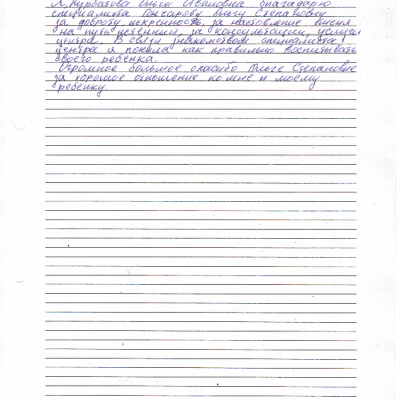 Я, Курбатова Ольга Ивановна благодарю
специалиста Гончарову Ольгу Степановну
за доброту, искренность, за наставление меня
на путь истинный, за консультации, услуги
центра. В связи знакомством специалиста
центра я поняла как правильно воспитывать
своего ребенка.
Огромное большое спасибо Ольге Степановне
за хорошее отношение ко мне и моему
ребенку.